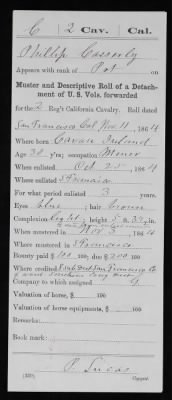 C 2 Cav. Cal.
Phillip Casserly
Appears with rank of Pvt on
Muster and Descriptive Roll of a Detach-
ment of U. S. Vols. forwarded
for the 2 Reg't California Cavalry. Roll dated
San Francisco Cal Nov 11, 1864
Where born Cavan Ireland
Age 30 y'rs; occupation Miner
When enlisted Oct 25, 1864
Where enlisted S Francisco
For what period enlisted 3 years.
Eyes Blue; hair Brown
Complexion Light; height 5 ft. in.
When mustered in Nov 3, 1864
Where mustered in S Francisco
Bounty paid $ 100; due $ 200 100
Where credited San Francisco Co
Company to which assigned
Valuation of horse, $ 100
Valuation of horse equipments, $ 100
Remarks:
Book mark:
P. Lucas
(339) Copyist.